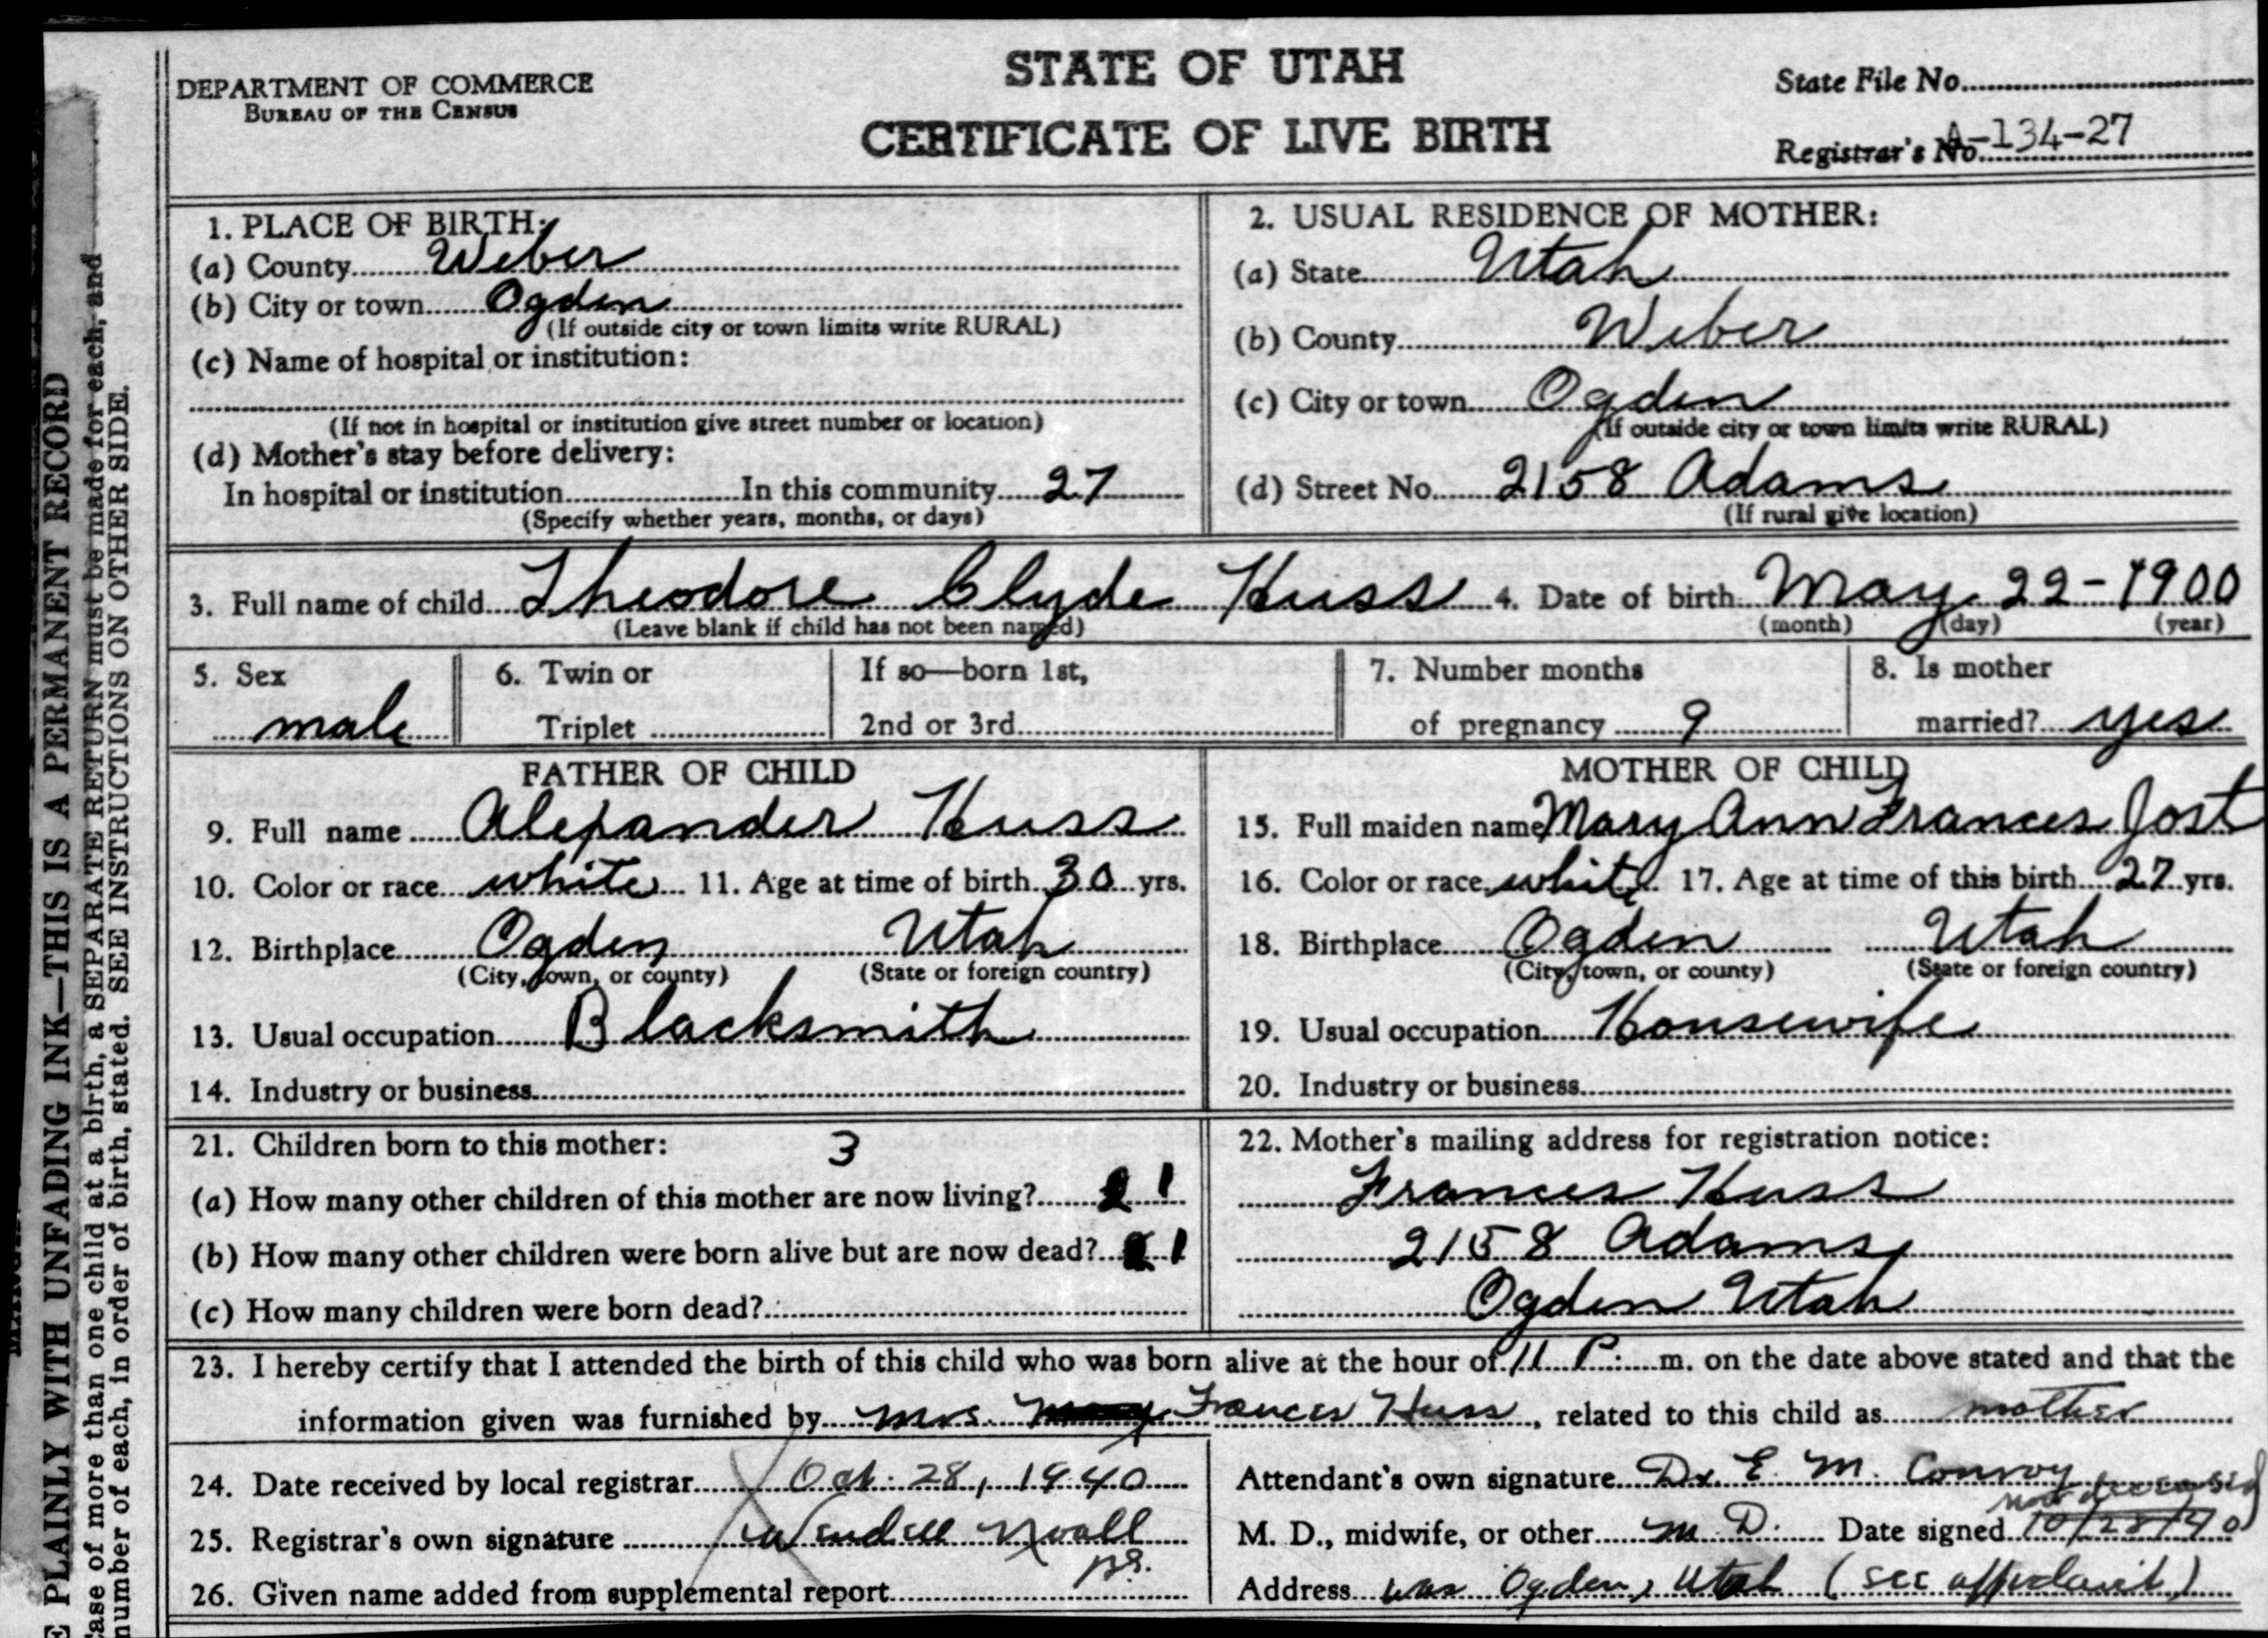 DEPARTMENT OF COMMERCE
BUREAU OF THE CENSUS
STATE OF UTAH
CERTIFICATE OF LIVE BIRTH
State File No.
Registrar's No. A-134-27
1. PLACE OF BIRTH:
(a) County Weber
(b) City or town Ogden
(If outside city or town limits write RURAL)
(c) Name of hospital or institution:
(If not in hospital or institution give street number or location)
(d) Mother's stay before delivery:
In hospital or institution In this community 27
(Specify whether years, months, or days)
2. USUAL RESIDENCE OF MOTHER:
(a) State Utah
(b) County Weber
(c) City or town Ogden
(If outside city or town limits write RURAL)
(d) Street No. 2158 Adams
(If rural give location)
3. Full name of child Theodore Clyde Huss 4. Date of birth May 22-1900
(Leave blank if child has not been named) (month) (day) (year)
5. Sex male
6. Twin or Triplet
If so—born 1st, 2nd or 3rd
7. Number months of pregnancy 9
8. Is mother married? yes
FATHER OF CHILD
9. Full name Alexander Huss
10. Color or race white 11. Age at time of birth 30 yrs.
12. Birthplace Ogden Utah
(City, town, or county) (State or foreign country)
13. Usual occupation Blacksmith
14. Industry or business
MOTHER OF CHILD
15. Full maiden name Mary Ann Frances Jost
16. Color or race white 17. Age at time of this birth 27 yrs.
18. Birthplace Ogden Utah
(City, town, or county) (State or foreign country)
19. Usual occupation Housewife
20. Industry or business
21. Children born to this mother: 3
(a) How many other children of this mother are now living? 1
(b) How many other children were born alive but are now dead? 1
(c) How many children were born dead?
22. Mother's mailing address for registration notice:
Frances Huss
2158 Adams
Ogden Utah
23. I hereby certify that I attended the birth of this child who was born alive at the hour of 11 P.: m. on the date above stated and that the
information given was furnished by Mrs. Frances Huss, related to this child as mother
24. Date received by local registrar Oct. 28, 1940
25. Registrar's own signature Wendell Noall
26. Given name added from supplemental report
Attendant's own signature Dr. E. M. Conroy
now deceased
M. D., midwife, or other M. D. Date signed 10/28/40
Address was Ogden, Utah (see affidavit)
E PLAINLY WITH UNFADING INK—THIS IS A PERMANENT RECORD
case of more than one child at a birth, a SEPARATE RETURN must be made for each, and
number of each, in order of birth, stated. SEE INSTRUCTIONS ON OTHER SIDE.